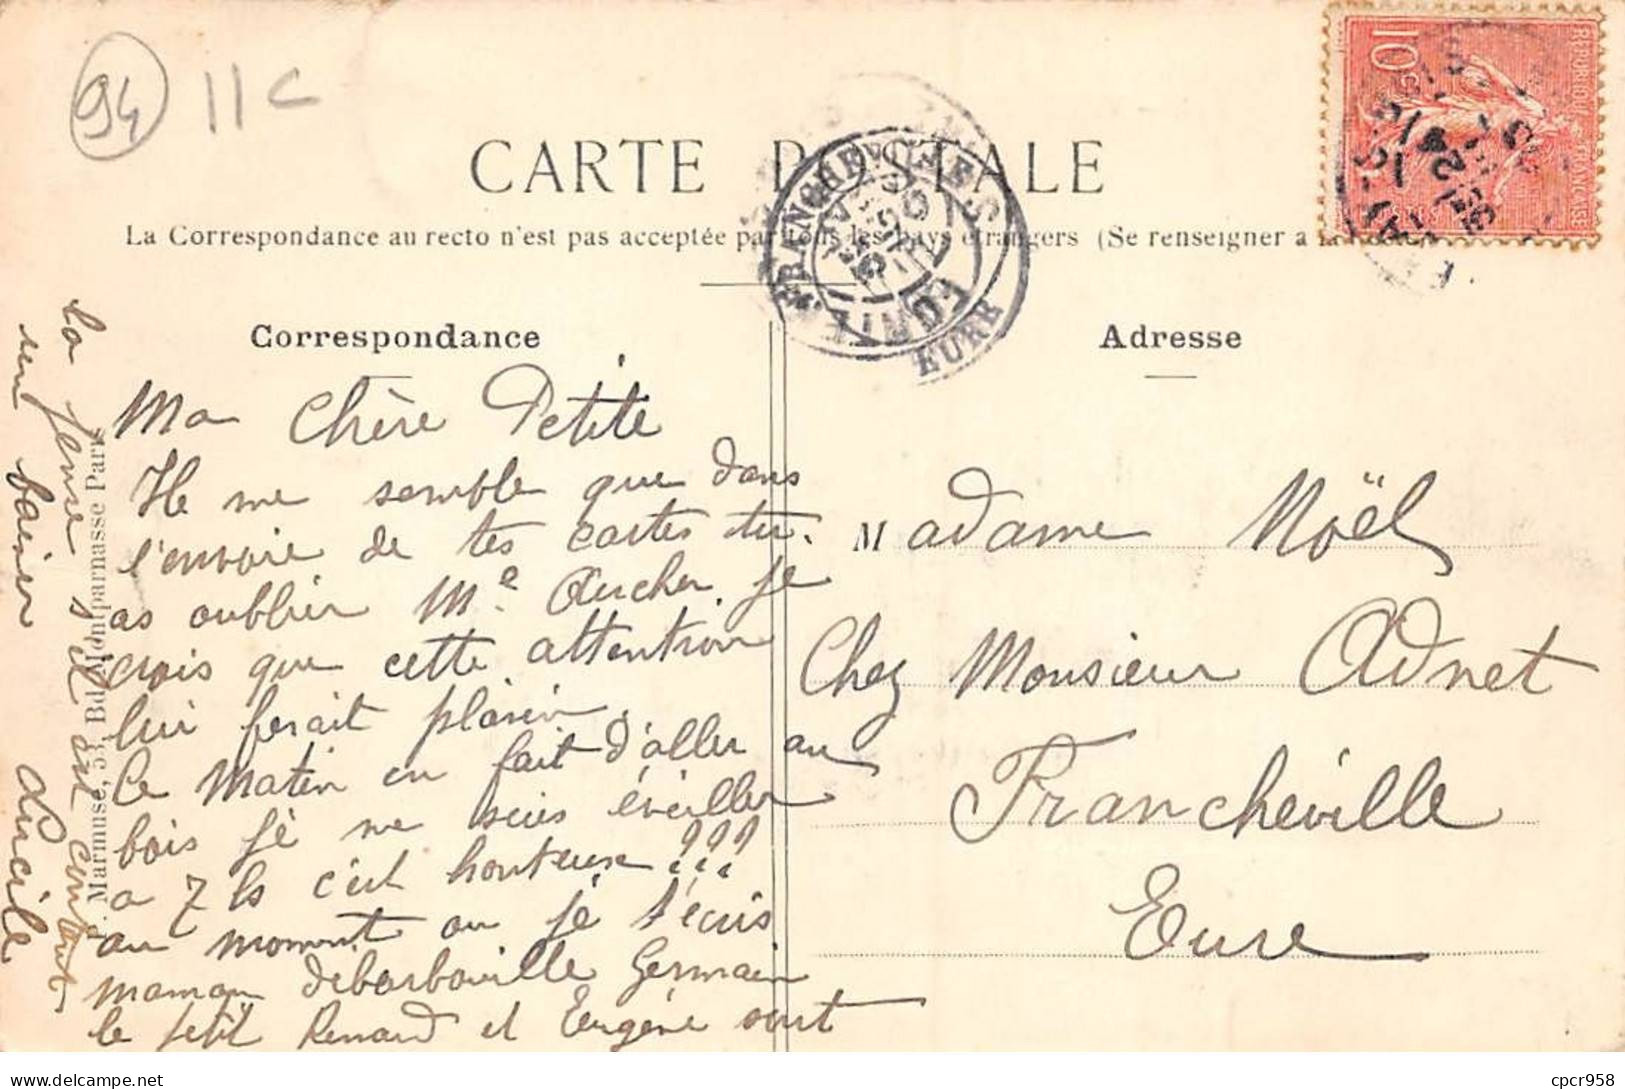 94 11c
CARTE POSTALE
La Correspondance au recto n'est pas acceptée par tous les pays étrangers (Se renseigner a la
Correspondance
Adresse
Ma Chère Petite
Il me semble que dans
l'envoie de tes cartes tu
as oublier Me Aucher je
crois que cette attention
lui ferait plaisir.
Ce matin en fait d'aller au
bois je me suis éveiller
a 7 hs c'est honteux !!!
au moment ou je t'écris
maman débarbouille Germain
le petit Renard et Eugène sont
la pense s'il est content
un baiser Lucile
Marmuse, 53, Bd Montparnasse Paris
Madame Noël
Chez Monsieur Adnet
Francheville
Eure
FRANCHEVILLE
EURE
10c
REPUBLIQUE FRANCAISE
cpcr958